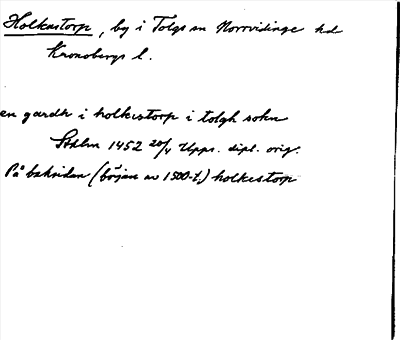 Holkastorp, by i Tolgs sn Norrvidinge hd
Kronobergs l.
en gardh i holkistorp i tolgh sokn
Sthlm 1452 20/4 Upps. dipl. orig.
På baksidan (början av 1500-t.) holkestorp